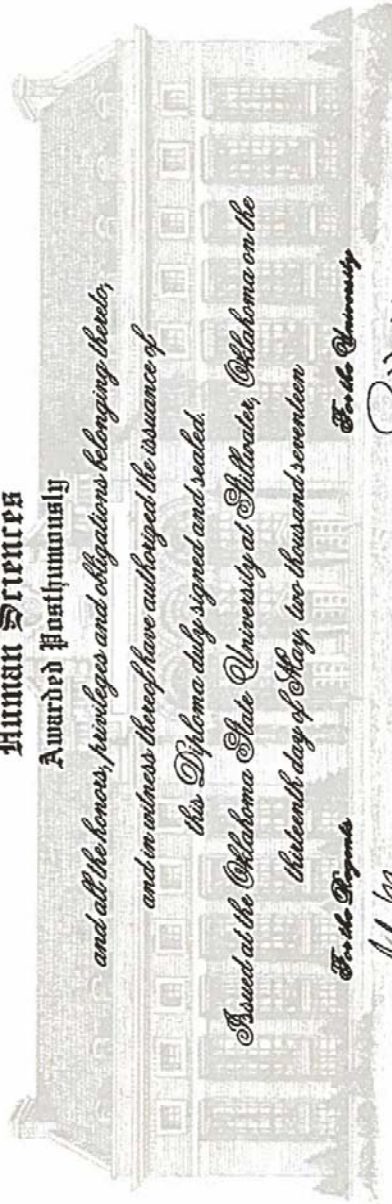 Human Sciences
Awarded Posthumously
and all the honors, privileges and obligations belonging thereto,
and in witness thereof have authorized the issuance of
this Diploma duly signed and sealed.
Issued at the Oklahoma State University at Stillwater, Oklahoma on the
thirteenth day of May, two thousand seventeen
For the Regents For the University